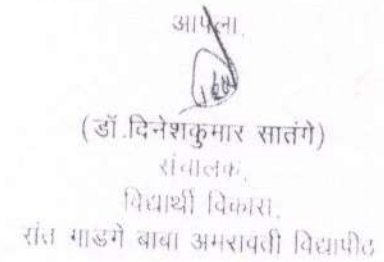 आपला,
(डॉ.दिनेशकुमार सातंगे)
संचालक,
विद्यार्थी विकास,
संत गाडगे बाबा अमरावती विद्यापीठ